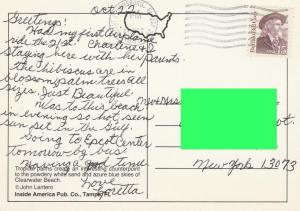 Oct 22
Greetings!
Had my first airplane
ride the 21st. Charlene & I
staying here with her parents.
The hibiscus are in
blossom, palm trees all
sizes. Just Beautiful
Was to this beach
in evening so hot, seen
sun set in the Gulf.
Going to Epcot Center
tomorrow by bus
Having a good time
Love
Loretta
Tropical palms create an interesting counterpoint
to the powdery white sand and azure blue skies of
Clearwater Beach.
© John Lantero
Inside America Pub. Co., Tampa, Fl.
Mr + Mrs
New York 13073